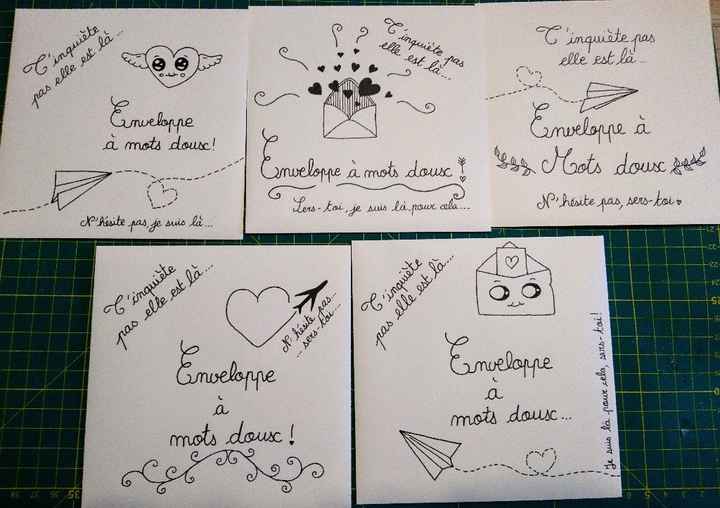 T'inquiète
pas elle est là...
Enveloppe
à mots doux!
N'hésite pas, je suis là...
T'inquiète pas
elle est là...
Enveloppe à mots doux !
Sers-toi, je suis là pour cela...
T'inquiète pas
elle est là...
Enveloppe à
Mots doux
N'hésite pas, sers-toi
T'inquiète
pas elle est là...
N'hésite pas...
... sers-toi...
Enveloppe
à
mots doux !
T'inquiète
pas elle est là...
Enveloppe
à
mots doux...
Je suis là pour cela, sers-toi!